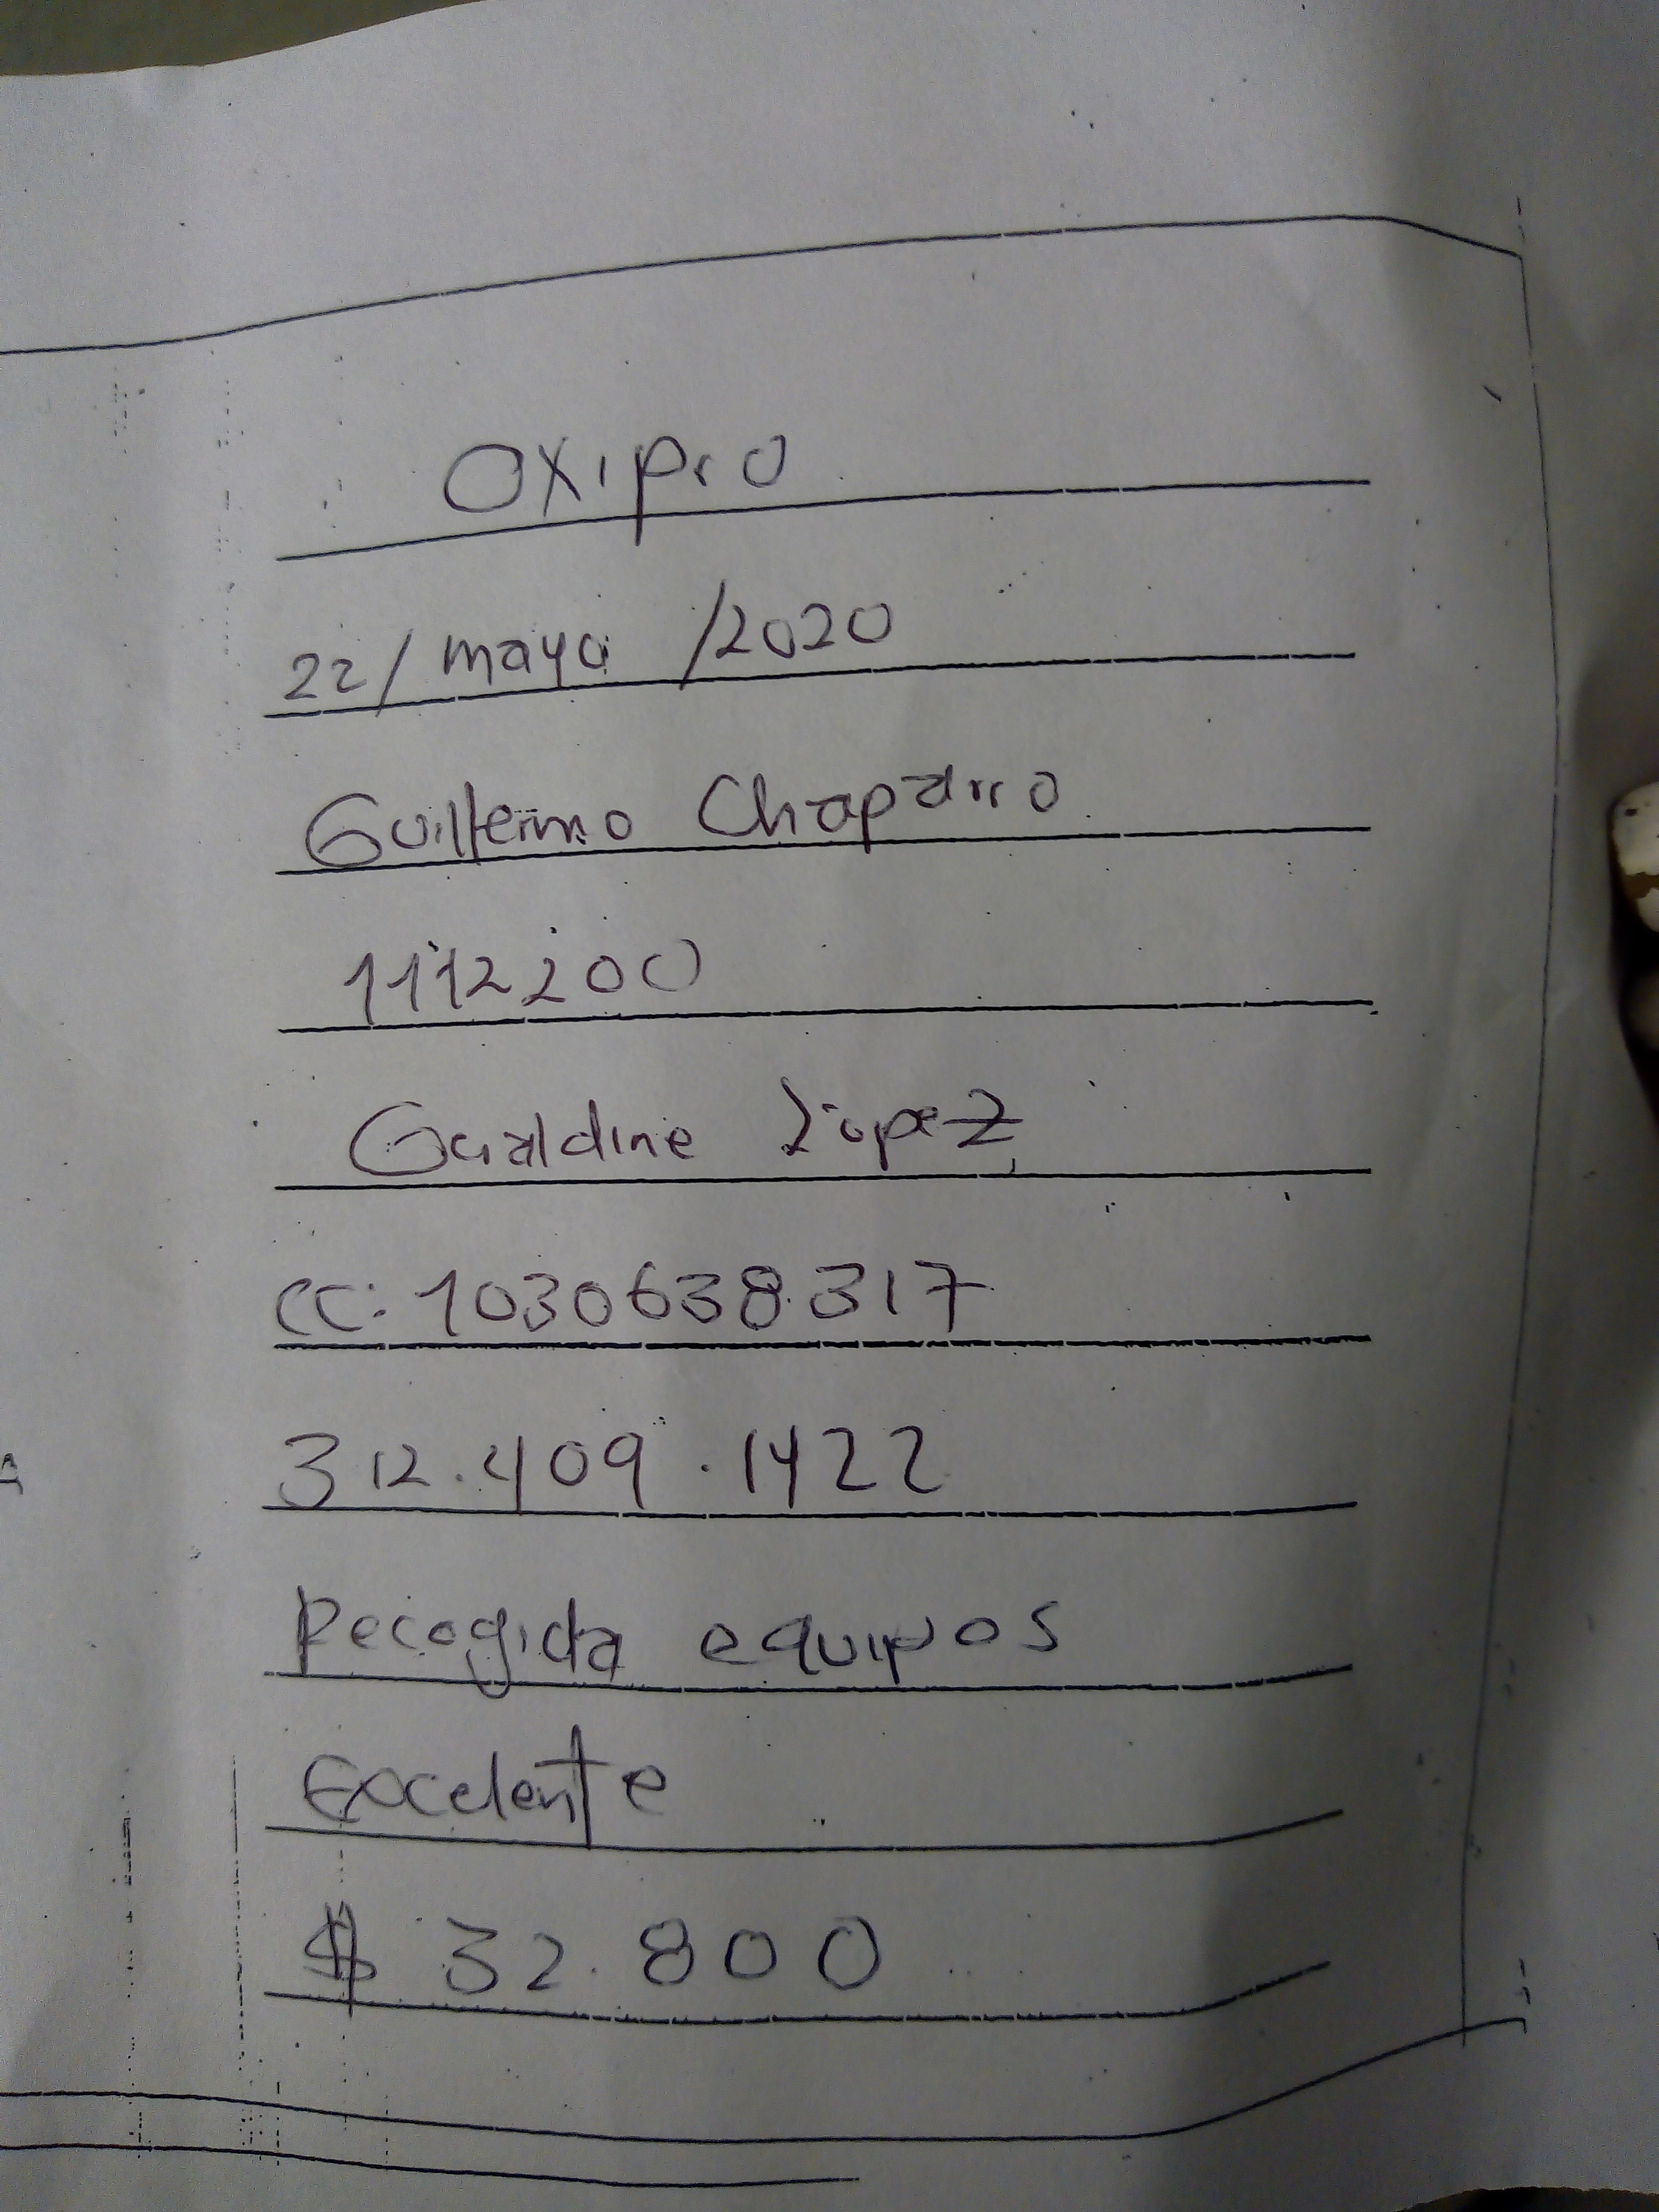 Oxipro
22/mayo/2020
Guillermo Chaparro
1112200
Geraldine Lopez
CC: 1030638.317
312.409.1422
Recogida equipos
Excelente
$ 32.800